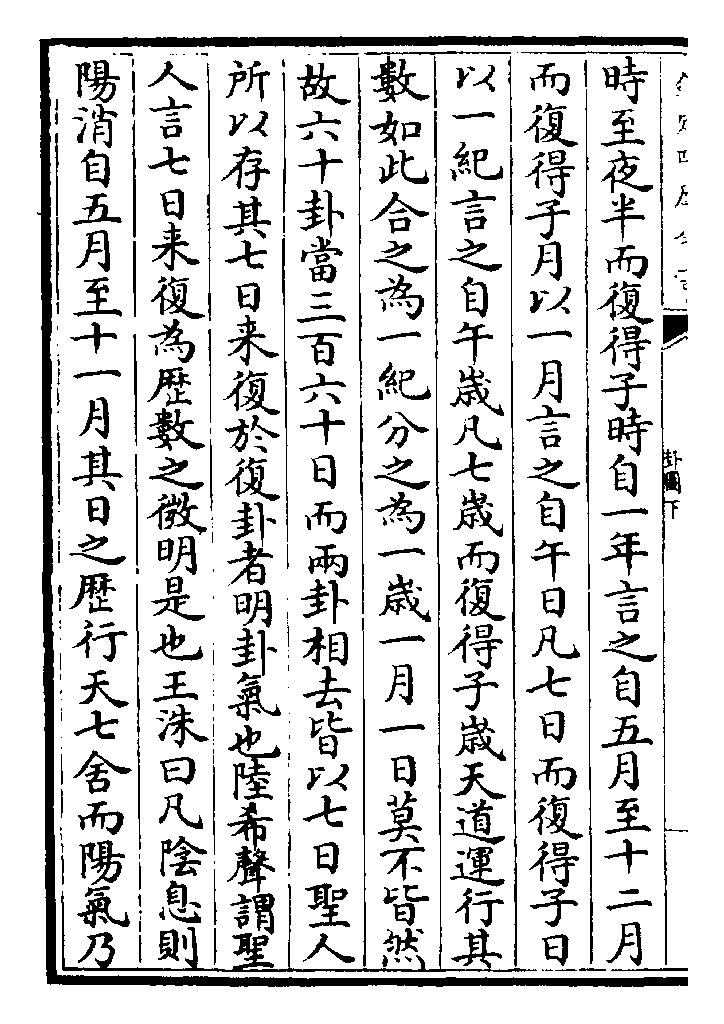 時至夜半而復得子時自一年言之自五月至十二月
而復得子月以一月言之自午日凡七日而復得子日
以一紀言之自午歳凡七歳而復得子歳天道運行其
數如此合之為一紀分之為一歳一月一日莫不皆然
故六十卦當三百六十日而兩卦相去皆以七日聖人
所以存其七日来復於復卦者明卦氣也陸希聲謂聖
人言七日来復為歴數之微明是也王洙曰凡陰息則
陽消自五月至十一月其日之歴行天七舍而陽氣乃
卦圖下